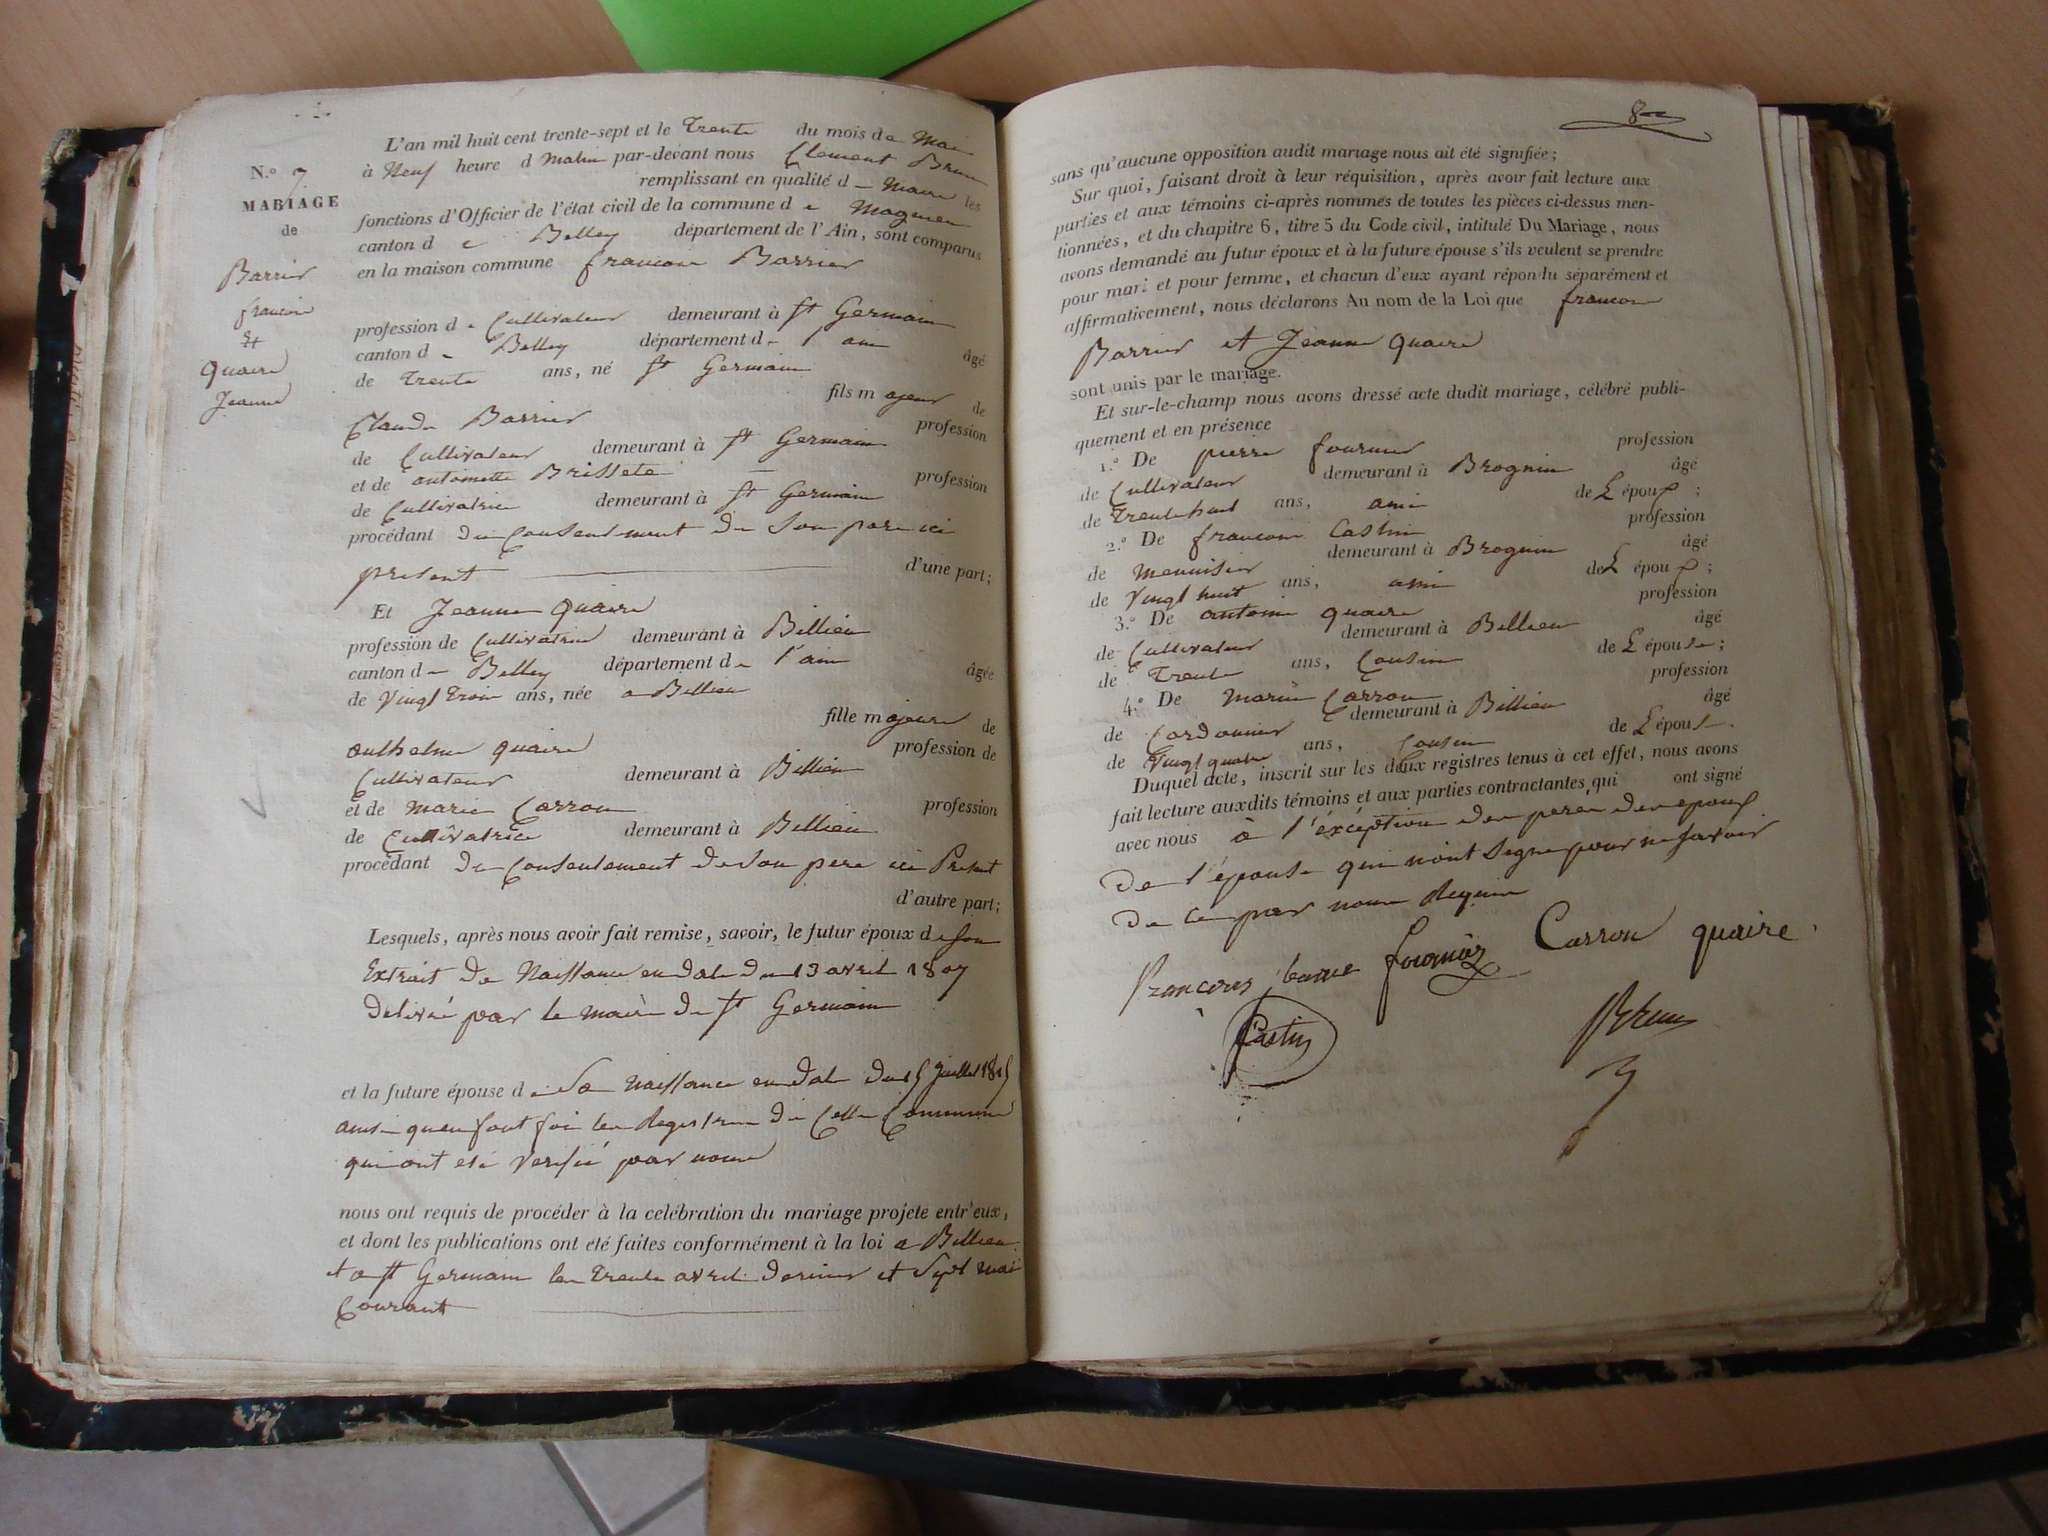 N.° 7
MARIAGE
de
Barrier
françois
Et
Quaire
Jeanne
L'an mil huit cent trente-sept et le Trente du mois de Mai
à Neuf heure d Matin par-devant nous Clement Brun
remplissant en qualité d e Maire les
fonctions d'Officier de l'état civil de la commune d e Magnieu
canton d e Belley département de l'Ain, sont comparus
en la maison commune françois Barrier
profession d e Cultivateur demeurant à St Germain
canton d e Belley département d e l'ain âgé
de Trente ans, né St Germain
fils m ajeur de
Claude Barrier profession
de Cultivateur demeurant à St Germain
et de antoinette Brisset profession
de Cultivatrice demeurant à St Germain
procédant du Consentement de Son pere ici
present d'une part;
Et Jeanne Quaire
profession de Cultivatrice demeurant à Billieu
canton d e Belley département d e l'ain âgée
de Vingt Trois ans, née a Billieu
fille m ajeure de
anthelme quaire profession de
Cultivateur demeurant à Billieu
et de Marie Carron profession
de Cultivatrice demeurant à Billieu
procédant du Consentement de Son pere ici Present
d'autre part;
Lesquels, après nous avoir fait remise, savoir, le futur époux de son
Extrait de Naissance en date du 13 avril 1807
delivré par le maire de St Germain
et la future épouse d e Sa naissance en date du 15 Juillet 18
ainsi qu'en font foi les Registres de Cette Commune
qui ont eté Verifié par nous
nous ont requis de procéder à la celébration du mariage projeté entr'eux,
et dont les publications ont été faites conformément à la loi a Billieu
et a St Germain les Trente avril dernier et Sept mai
Courant
80
sans qu'aucune opposition audit mariage nous ait été signifiée;
Sur quoi, faisant droit à leur réquisition, après avoir fait lecture aux
parties et aux témoins ci-après nommés de toutes les pièces ci-dessus men-
tionnées, et du chapitre 6, titre 5 du Code civil, intitulé Du Mariage, nous
avons demandé au futur époux et à la future épouse s'ils veulent se prendre
pour mari et pour femme, et chacun d'eux ayant répondu séparément et
affirmativement, nous déclarons Au nom de la Loi que françois
Barrier et Jeanne Quaire
sont unis par le mariage.
Et sur-le-champ nous avons dressé acte dudit mariage, célébré publi-
quement et en présence
1.° De pierre fournier profession
de Cultivateur demeurant à Brognin âgé
de Trente huit ans, ami de L époux;
2.° De françois Castin profession
de Menuisier demeurant à Brognin âgé
de Vingt huit ans, ami de L époux;
3.° De antoine quaire profession
de Cultivateur demeurant à Billieu âgé
de Trente ans, Cousin de L épouse;
4.° De Marin Carron profession
de Cordonnier demeurant à Billieu âgé
de Vingt quatre ans, Cousin de L épouse.
Duquel acte, inscrit sur les deux registres tenus à cet effet, nous avons
fait lecture auxdits témoins et aux parties contractantes qui ont signé
avec nous à l'éxception des peres des epoux
De l'épouse qui n'ont Signé pour ne Savoir
De ce par nous Requis
François fournier Carron quaire
Castin Brun